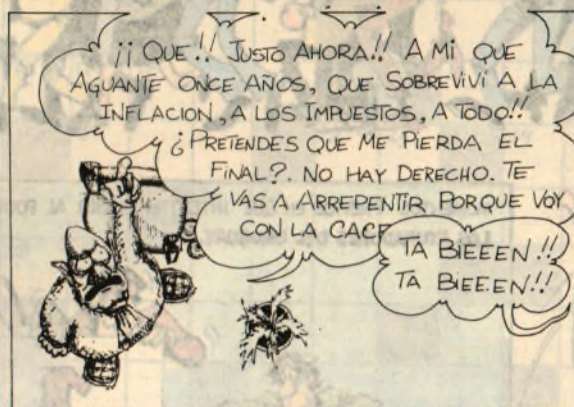 ¡¡ QUE!! JUSTO AHORA!! A MI QUE
AGUANTE ONCE AÑOS, QUE SOBREVIVÍ A LA
INFLACION, A LOS IMPUESTOS, A TODO!!
¿PRETENDES QUE ME PIERDA EL
FINAL?. NO HAY DERECHO. TE
VAS A ARREPENTIR PORQUE VOY
CON LA CACE
TA BIEEEN!!
TA BIEEEN!!